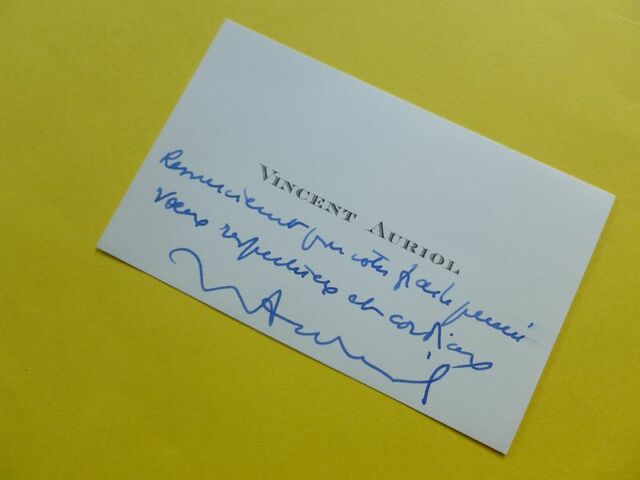 VINCENT AURIOL
Remerciements pour votre fidèle pensée
vœux respectueux et cordiaux
V Auriol